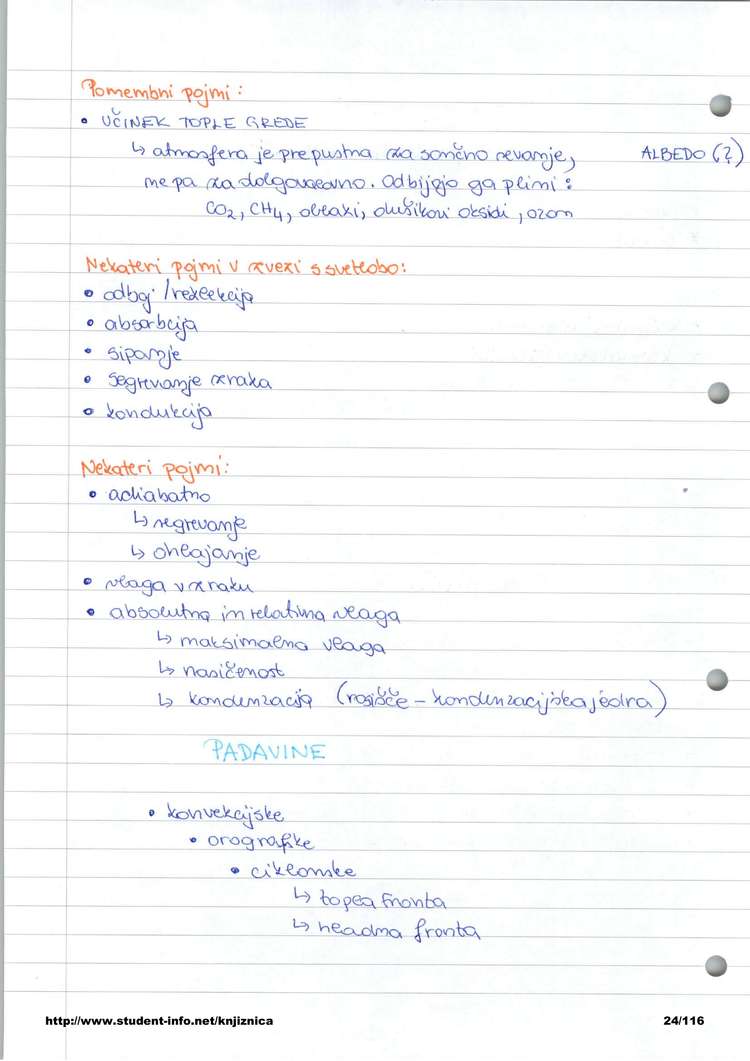 Pomembni pojmi:
• UČINEK TOPLE GREDE
↳ atmosfera je prepustna za sončno sevanje, ALBEDO (?)
ne pa za dolgovalovno. Odbijajo ga plini:
CO2, CH4, oblaki, dušikovi oksidi, ozon
Nekateri pojmi v zvezi s svetlobo:
• odboj /refleksija
• absorbcija
• sipanje
• segrevanje zraka
• kondukcija
Nekateri pojmi:
• adiabatno
↳ segrevanje
↳ ohlajanje
• vlaga v zraku
• absolutna in relativna vlaga
↳ maksimalna vlaga
↳ nasičenost
↳ kondenzacija (rosišče – kondenzacijska jedra)
PADAVINE
• konvekcijske
• orografske
• ciklonske
↳ topla fronta
↳ hladna fronta
http://www.student-info.net/knjiznica 24/116